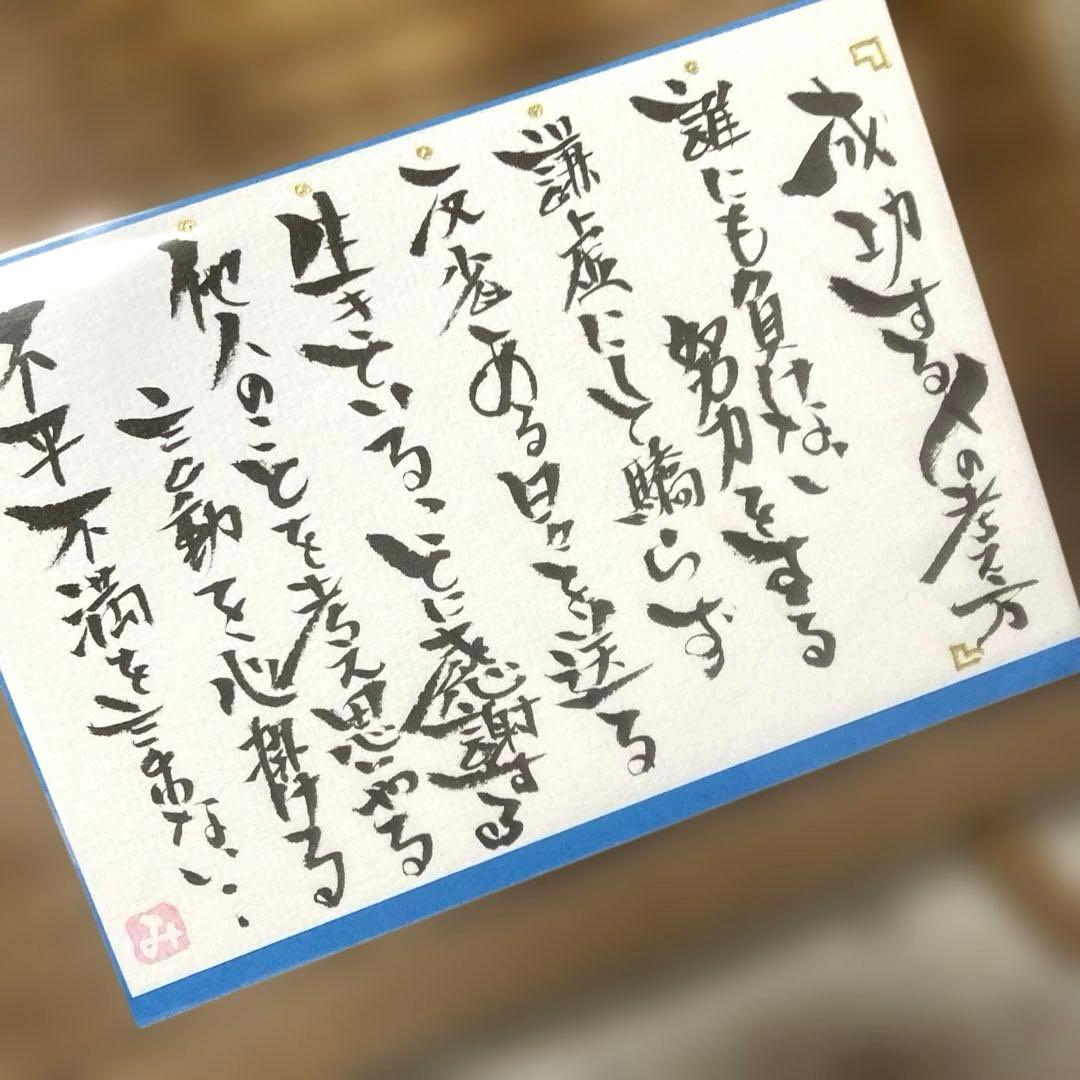 『成功する人の考え方』
誰にも負けない
努力をする
謙虚にして驕らず
反省ある日々を送る
生きていることに感謝する
他人のことを考え思いやる
言動を心掛ける
不平不満を言わない…
み